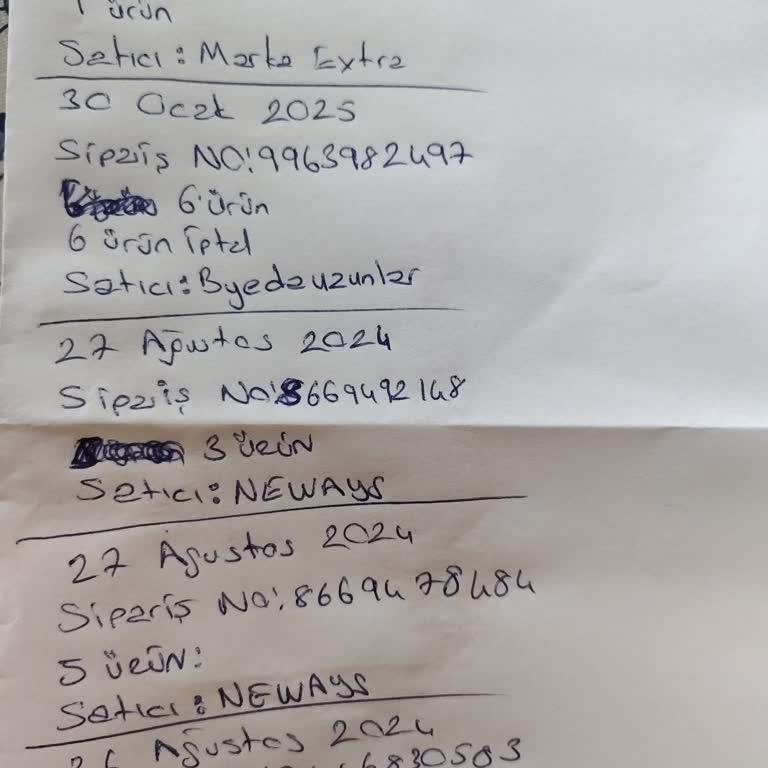 1 ürün
Satıcı: Marka Extra
30 Ocak 2025
Sipariş NO: 9963982497
6 ürün
6 ürün iptal
Satıcı: Byedauzunlar
27 Ağustos 2024
Sipariş NO: 8669492148
3 ürün
Satıcı: NEWAYS
27 Ağustos 2024
Sipariş NO: 8669478484
5 ürün:
Satıcı: NEWAYS
26 Ağustos 2024
6830583